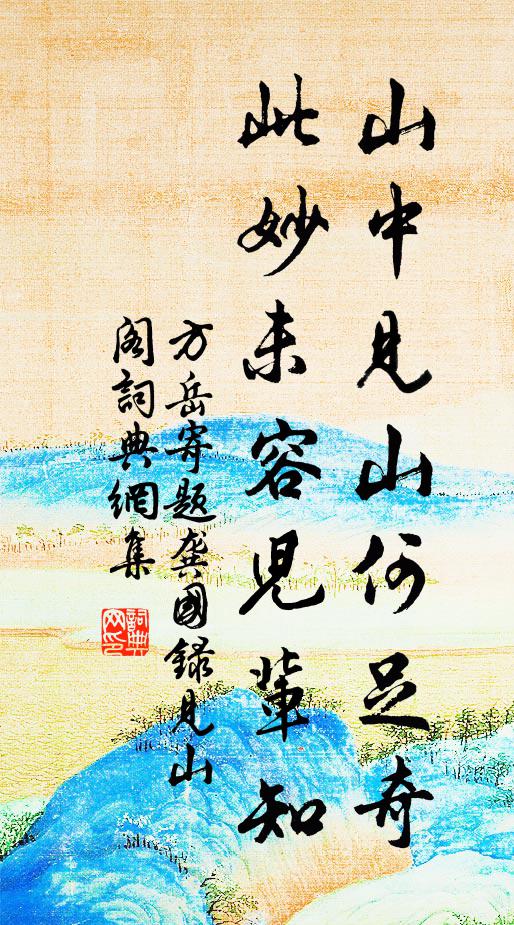 山中見山何足奇
此妙未容兒輩知
方岳寄題龔國録見山
閣詞典網集
詞典網印